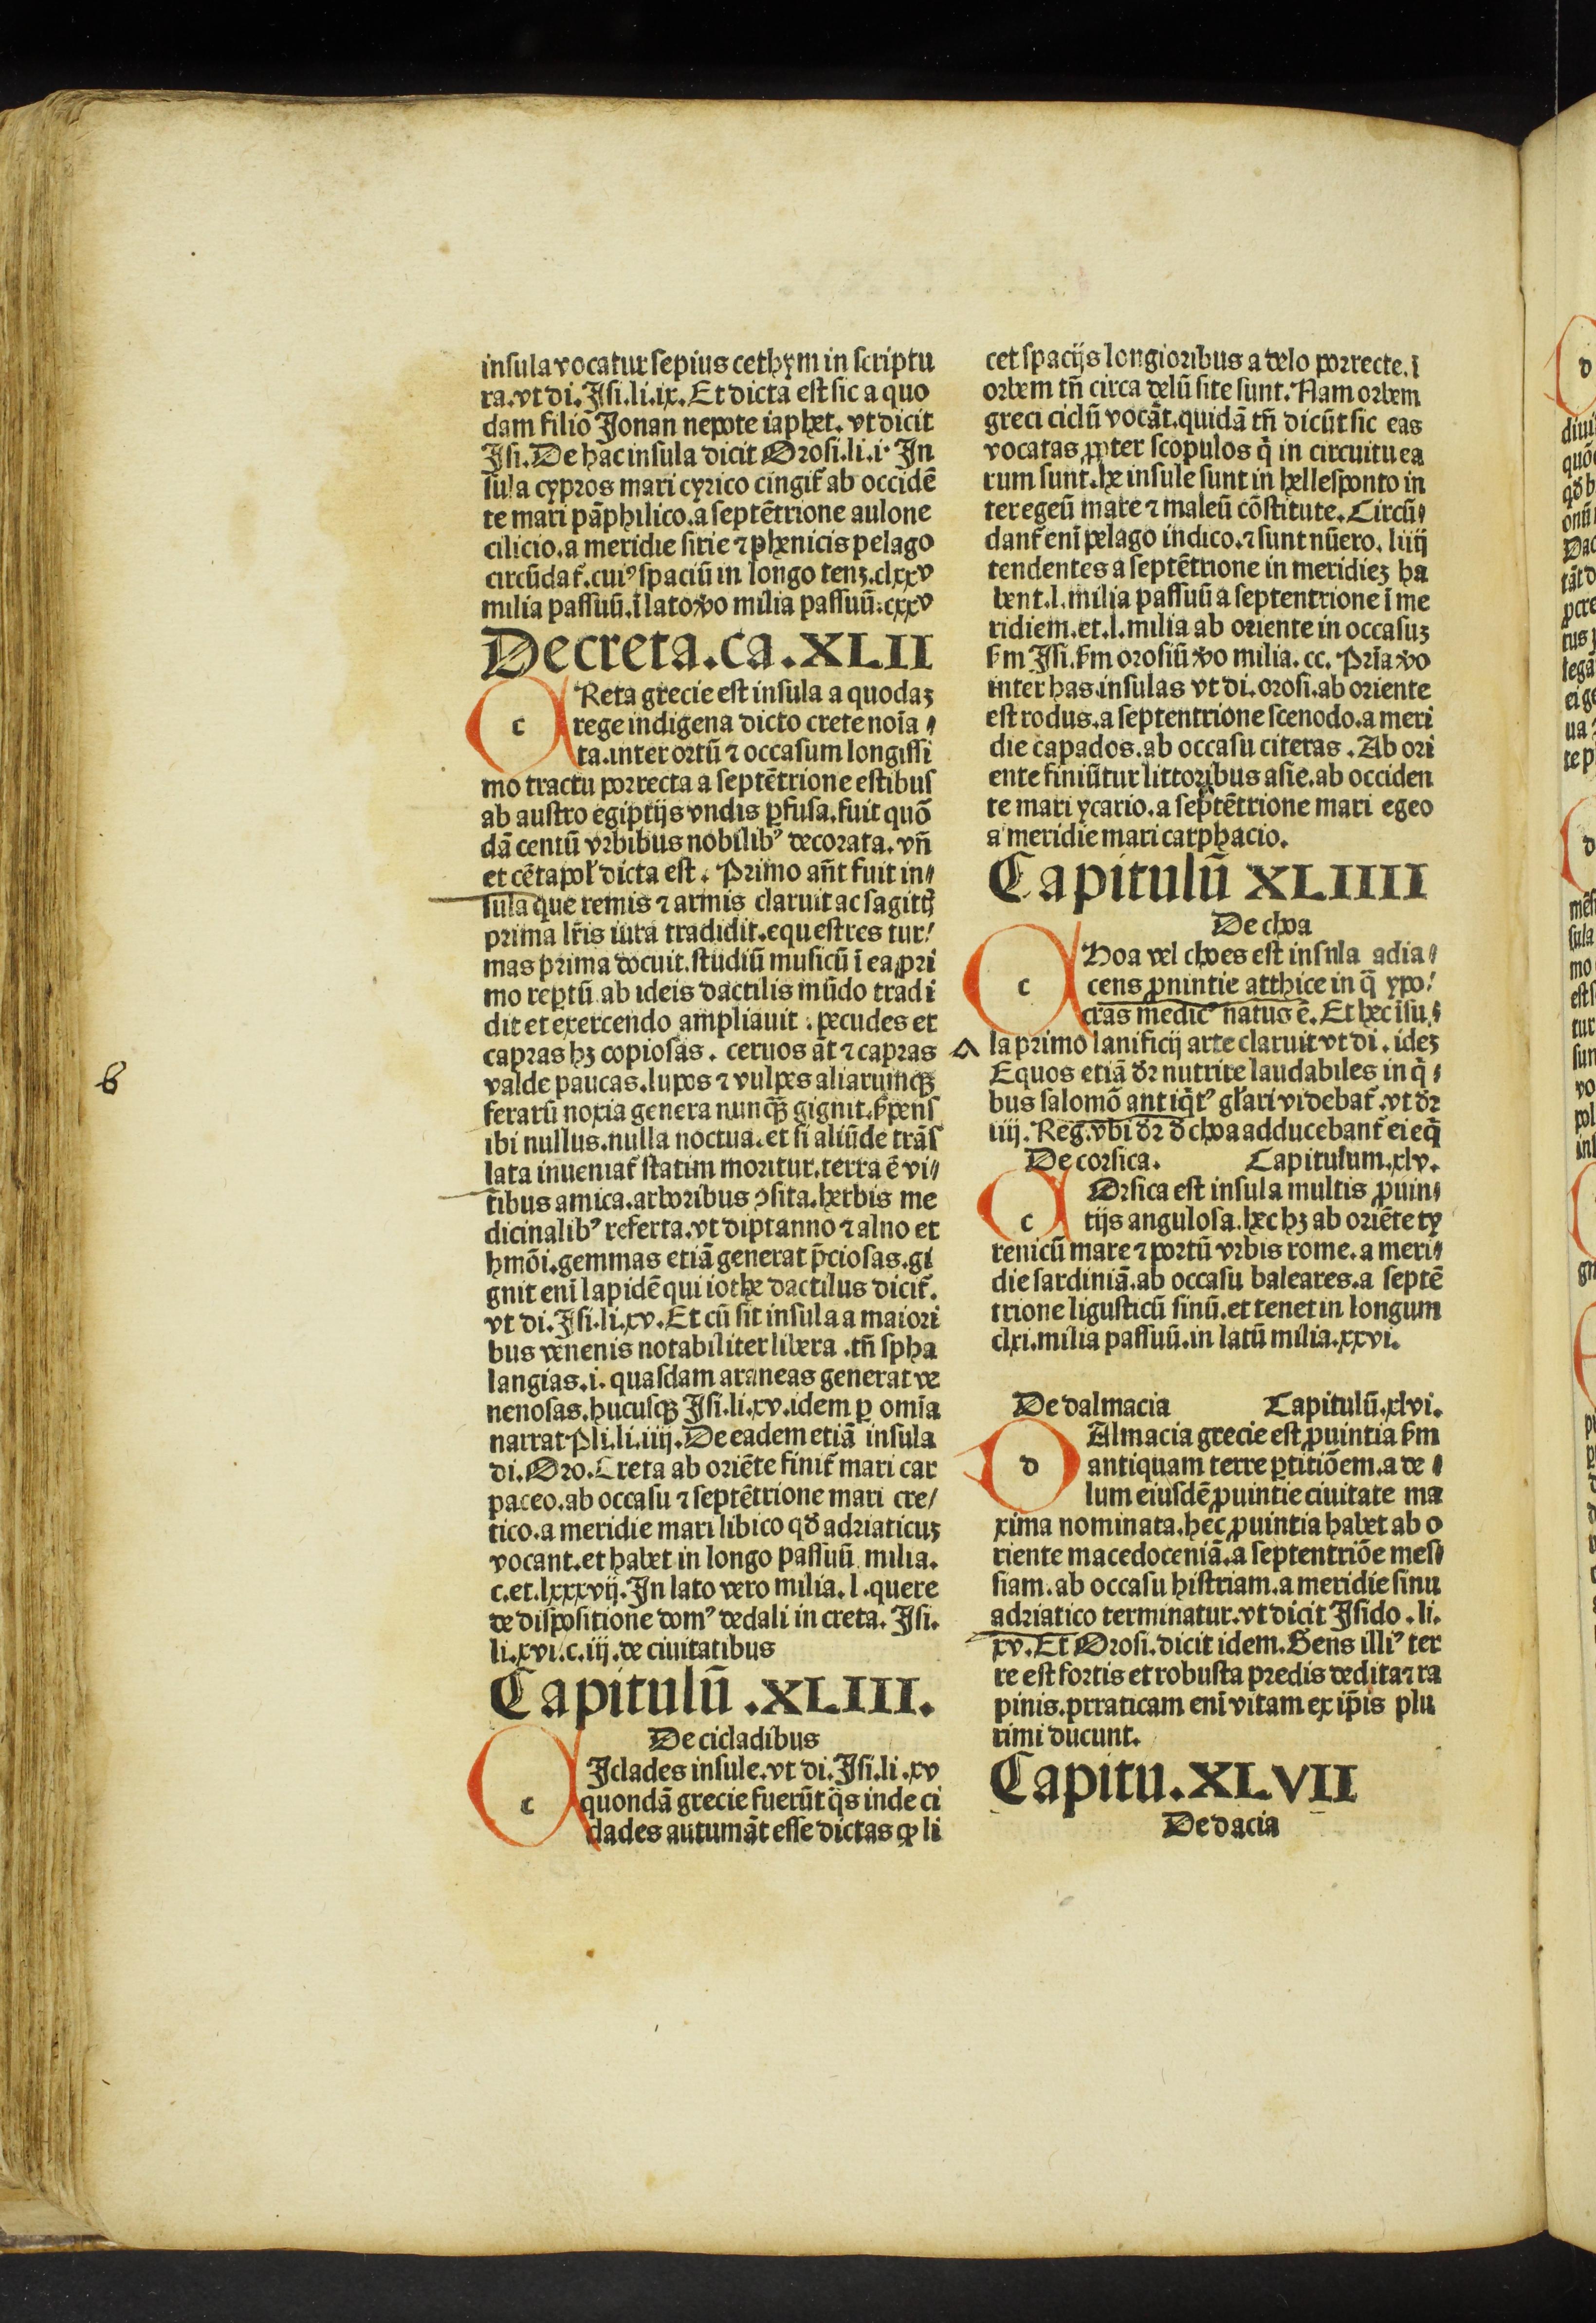 insula vocatur sepius cethym in scriptu
ra.vt di. Isi.li.ix. Et dicta est sic a quo
dam filiō Jonan nepote iaphet. vt dicit
Isi. De hac insula dicit Orosi.li.i. In
sula cypros mari cyrico cingit᷑ ab occidē
te mari pāphilico.a septētrione aulone
cilicio.a meridie sirie ⁊ phenicis pelago
circūdat᷑.cuiꝰ spaciū in longo tenꝫ.clxxv
milia passuū.ī lato v̄o milia passuū.cxxv
Decreta.ca.XLII
c Reta grecie est insula a quodaꝫ
rege indigena dicto crete noīa
ta.inter ortū ⁊ occasum longissi
mo tractu porrecta a septētrione estibus
ab austro egiptijs vndis ꝑfusa.fuit quō
dā centū vrbibus nobilibꝰ decorata.vn̄
et cētapol̓ dicta est. Primo an̄t fuit in
sula que remis ⁊ armis claruit ac sagittꝭ
prima lr̄is iura tradidit.equestres tur
mas prima docuit.studiū musicū ī ea pri
mo reptū ab ideis dactilis mūdo tradi
dit et exercendo ampliauit. pecudes et
capras hꝫ copiosas. ceruos āt ⁊ capras
valde paucas.lupos ⁊ vulpes aliarumqꝫ
ferarū noxia genera nunqꝫ gignit.s̓pens
ibi nullus.nulla noctua.et si aliūde trās
lata inueniat᷑ statim moritur.terra ē vi
tibus amica.arboribus ꝯsita.herbis me
dicinalibꝰ referta.vt diptanno ⁊ alno et
hmōi.gemmas etiā generat p̄ciosas.gi
gnit enī lapidē qui iothe dactilus dicit᷑.
vt di. Isi.li.xv. Et cū sit insula a maiori
bus venenis notabiliter libera .tn̄ spha
langias.i. quasdam araneas generat ve
nenosas.hucusqꝫ Isi.li.xv.idem ꝑ omīa
narrat Pli.li.iiij. De eadem etiā insula
di. Oro. Creta ab oriēte finit᷑ mari car
paceo.ab occasu ⁊ septētrione mari cre
tico.a meridie mari libico qđ adriaticuꝫ
vocant.et habet in longo passuū milia.
c.et.lxxxvij. In lato vero milia. l .quere
de dispositione domꝰ dedali in creta. Isi.
li.xvi.c.iij.de ciuitatibus
Capitulū .XLIII.
De cicladibus
c Iclades insule.vt di. Isi.li.xv
quondā grecie fuerūt q̄s inde ci
clades autumāt esse dictas ꝙ li
b
cet spacijs longioribus a delo porrecte.ī
orbem tn̄ circa delū site sunt. Nam orbem
greci ciclū vocāt.quidā tn̄ dicūt sic eas
vocatas ꝓpter scopulos q̄ in circuitu ea
rum sunt.he insule sunt in hellesponto in
ter egeū mare ⁊ maleū cōstitute. Circū
dant᷑ enī pelago indico.⁊ sunt nūero. liiij
tendentes a septētrione in meridieꝫ ha
bent.l.milia passuū a septentrione ī me
ridiem.et.l.milia ab oriente in occasuꝫ
s̄m Isi.s̄m orosiū v̄o milia. cc. Pria v̄o
inter has insulas vt di.orosi.ab oriente
est rodus.a septentrione scenodo.a meri
die capados.ab occasu citeras. Ab ori
ente finiūtur littoribus asie.ab occiden
te mari ycario.a septētrione mari egeo
a meridie mari catphacio.
Capitulū XLIIII
De choa
c Hoa vel choes est insnla adia
cens ꝓnintie atthice in q̄ ypo
cras medicꝰ natus ē. Et hec īsu
la primo lanificij arte claruit vt di. ideꝫ
Equos etiā dr̄ nutrire laudabiles in q̄
bus salomō antiq̄tꝰ gl̓ari videbat᷑.vt dr̄
iiij. Reg.vbi dr̄ đ choa adducebant᷑ ei eq̄
De corsica. Capitulum.xlv.
c Orsica est insula multis ꝓuin
tijs angulosa.hec hꝫ ab oriēte ty
renicū mare ⁊ portū vrbis rome.a meri
die sardiniā.ab occasu baleares.a septē
trione ligusticū sinū.et tenet in longum
clxi.milia passuū.in latū milia.xxvi.
De dalmacia Capitulū.xlvi.
d Almacia grecie est ꝓuintia s̄m
antiquam terre ꝑtitiōem.a de
lum eiusdē ꝓuintie ciuitate ma
xima nominata.hec ꝓuintia habet ab o
riente macedoceniā.a septentriōe mes
siam.ab occasu histriam.a meridie sinu
adriatico terminatur.vt dicit Isido.li.
xv. Et Orosi.dicit idem. Gens illiꝰ ter
re est fortis et robusta predis dedita ⁊ ra
pinis.prraticam enī vitam ex ip̄is plu
rimi ducunt.
Capitu.XLVII
De dacia